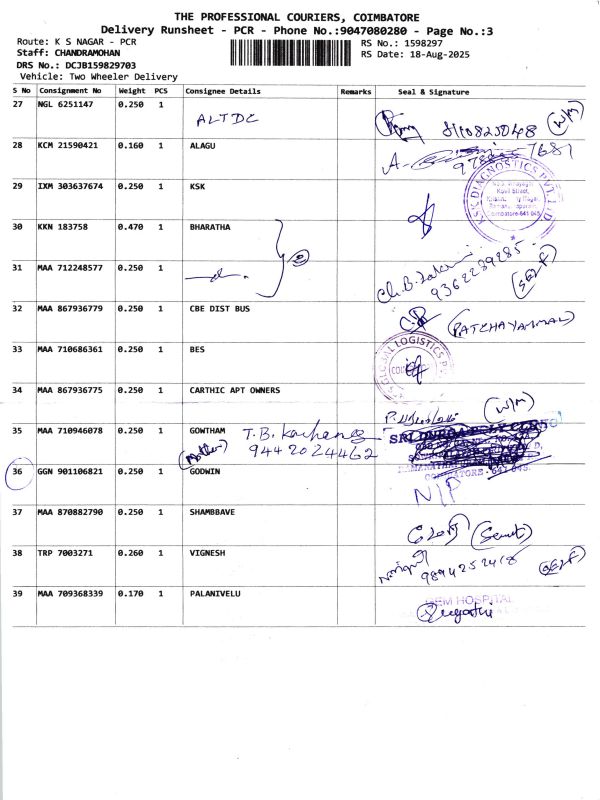 THE PROFESSIONAL COURIERS, COIMBATORE
Delivery Runsheet - PCR - Phone No.:9047080280 - Page No.:3
Route: K S NAGAR - PCR
RS No.: 1598297
Staff: CHANDRAMOHAN
RS Date: 18-Aug-2025
DRS No.: DCJB159829703
Vehicle: Two Wheeler Delivery
S No Consignment No Weight PCS Consignee Details Remarks Seal & Signature
27 NGL 6251147 0.250 1 ALTDC 8110823048 (W/M)
28 KCM 21590421 0.160 1 ALAGU
29 IXM 303637674 0.250 1 KSK
KSK DIAGNOSTICS PVT. LTD.
30 KKN 183758 0.470 1 BHARATHA 2
31 MAA 712248577 0.250 1 9362289285 (SELF)
32 MAA 867936779 0.250 1 CBE DIST BUS (PATCHAYAMMAL)
33 MAA 710686361 0.250 1 BES
GLOBAL LOGISTICS
34 MAA 867936775 0.250 1 CARTHIC APT OWNERS
(W/M)
35 MAA 710946078 0.250 1 GOWTHAM T.B.
(Mother) 9442024462
SRI DURGA
36 GGN 901106821 0.250 1 GODWIN
COIMBATORE - 641 045.
N/P
37 MAA 870882790 0.250 1 SHAMBBAVE
38 TRP 7003271 0.260 1 VIGNESH 9894252418 (SELF)
39 MAA 709368339 0.170 1 PALANIVELU
GEM HOSPITAL